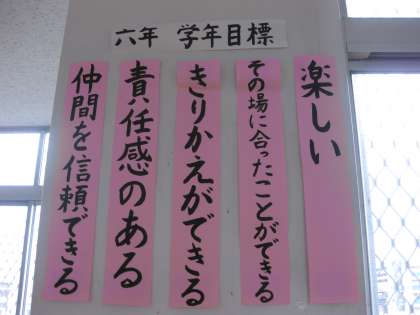 六年 学年目標
楽しい
その場に合ったことができる
きりかえができる
責任感のある
仲間を信頼できる